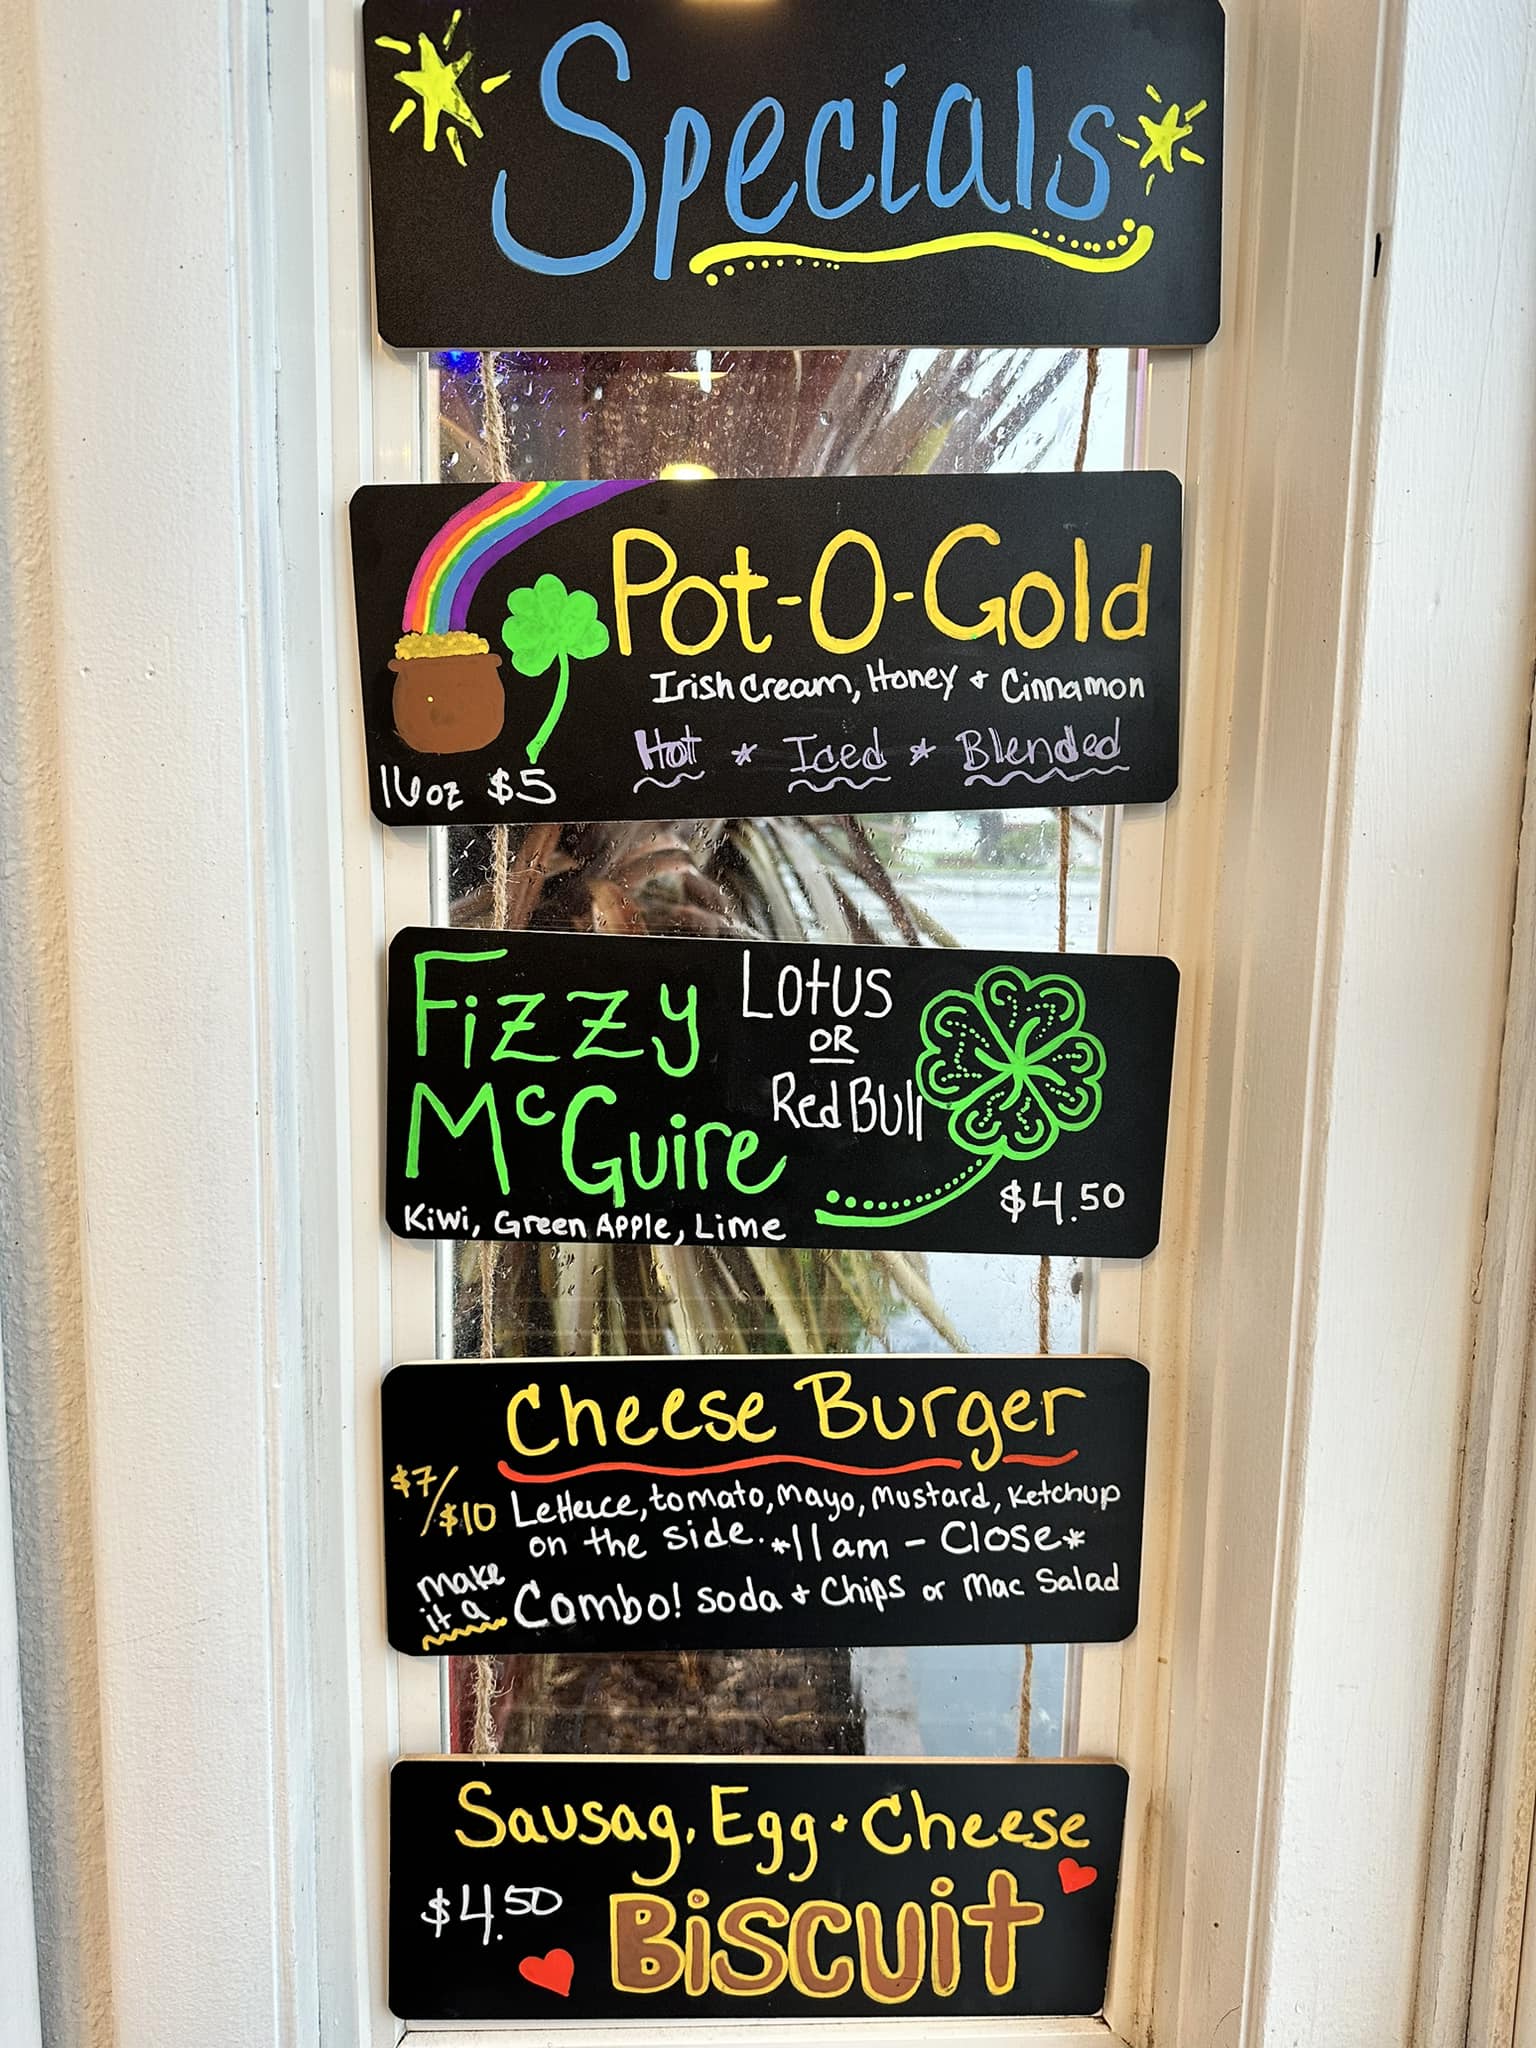 Specials
Pot-O-Gold
Irish cream, Honey + Cinnamon
Hot * Iced * Blended
16oz $5
Fizzy
McGuire
Lotus
OR
Red Bull
Kiwi, Green Apple, Lime
$4.50
Cheese Burger
$7/$10
Lettuce, tomato, mayo, mustard, ketchup
on the side. *11am - Close*
make
it a
Combo! soda + Chips or Mac Salad
Sausag, Egg + Cheese
$4.50
BiSCUit